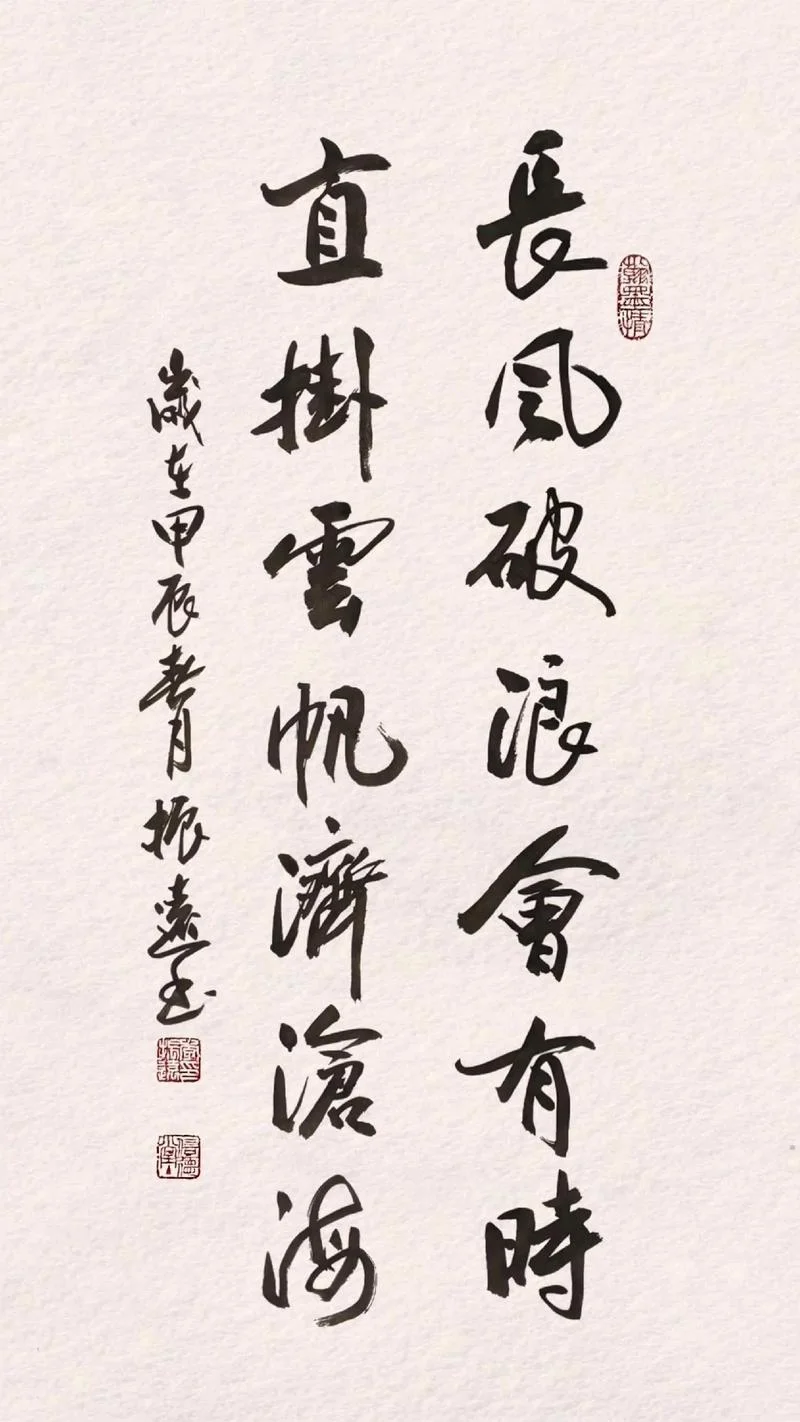 長風破浪會有時
直掛雲帆濟滄海
歲在甲辰春月振遠書